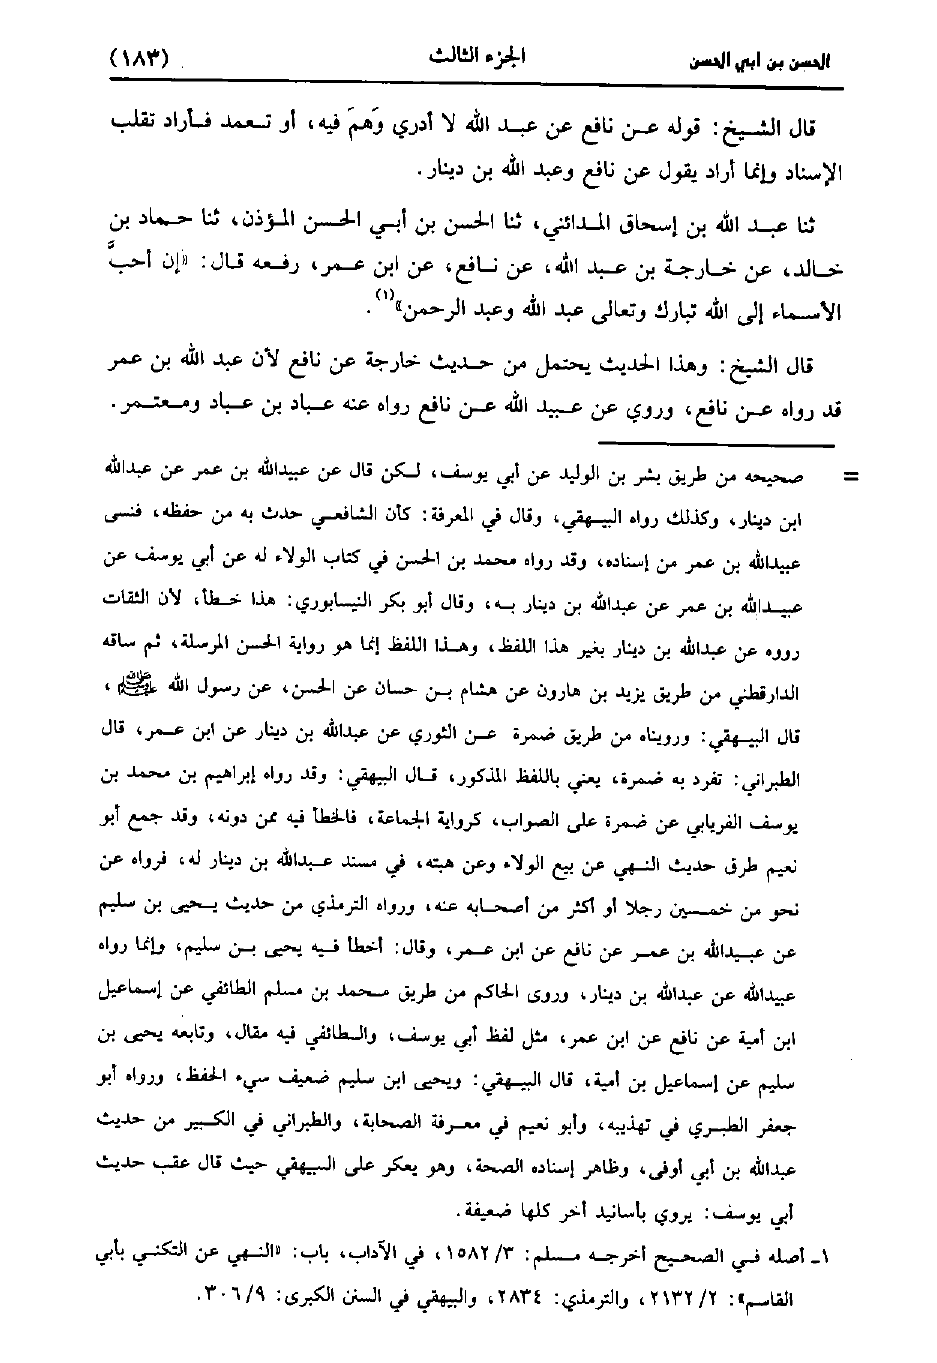 الحسن بن ابي الحسن الجزء الثالث (١٨٣)
قال الشيخ: قوله عن نافع عن عبد الله لا أدري وَهَمَ فيه، أو تعمد فأراد تقلب
الإسناد وإنما أراد يقول عن نافع وعبد الله بن دينار.
ثنا عبد الله بن إسحاق المدائني، ثنا الحسن بن أبي الحسن المؤذن، ثنا حماد بن
خالد، عن خارجة بن عبد الله، عن نافع، عن ابن عمر، رفعه قال: «إن أحبَّ
الأسماء إلى الله تبارك وتعالى عبد الله وعبد الرحمن»(١).
قال الشيخ: وهذا الحديث يحتمل من حديث خارجة عن نافع لأن عبد الله بن عمر
قد رواه عن نافع، وروي عن عبيد الله عن نافع رواه عنه عباد بن عباد ومعتمر.
= صحيحه من طريق بشر بن الوليد عن أبي يوسف، لكن قال عن عبيدالله بن عمر عن عبدالله
ابن دينار، وكذلك رواه البيهقي، وقال في المعرفة: كأن الشافعي حدث به من حفظه، فنسى
عبيدالله بن عمر من إسناده، وقد رواه محمد بن الحسن في كتاب الولاء له عن أبي يوسف عن
عبيدالله بن عمر عن عبدالله بن دينار به، وقال أبو بكر النيسابوري: هذا خطأ، لأن الثقات
رووه عن عبدالله بن دينار بغير هذا اللفظ، وهذا اللفظ إنما هو رواية الحسن المرسلة، ثم ساقه
الدارقطني من طريق يزيد بن هارون عن هشام بن حسان عن الحسن، عن رسول الله ﷺ،
قال البيهقي: ورويناه من طريق ضمرة عن الثوري عن عبدالله بن دينار عن ابن عمر، قال
الطبراني: تفرد به ضمرة، يعني باللفظ المذكور، قال البيهقي: وقد رواه إبراهيم بن محمد بن
يوسف الفريابي عن ضمرة على الصواب، كرواية الجماعة، فالخطأ فيه ممن دونه، وقد جمع أبو
نعيم طرق حديث النهي عن بيع الولاء وعن هبته، في مسند عبدالله بن دينار له، فرواه عن
نحو من خمسين رجلا أو أكثر من أصحابه عنه، ورواه الترمذي من حديث يحيى بن سليم
عن عبيدالله بن عمر عن نافع عن ابن عمر، وقال: أخطأ فيه يحيى بن سليم، وإنما رواه
عبيدالله عن عبدالله بن دينار، وروى الحاكم من طريق محمد بن مسلم الطائفي عن إسماعيل
ابن أمية عن نافع عن ابن عمر، مثل لفظ أبي يوسف، والطائفي فيه مقال، وتابعه يحيى بن
سليم عن إسماعيل بن أمية، قال البيهقي: ويحيى ابن سليم ضعيف سيء الحفظ، ورواه أبو
جعفر الطبري في تهذيبه، وأبو نعيم في معرفة الصحابة، والطبراني في الكبير من حديث
عبدالله بن أبي أوفى، وظاهر إسناده الصحة، وهو يعكر على البيهقي حيث قال عقب حديث
أبي يوسف: يروي بأسانيد أخر كلها ضعيفة.
١ـ أصله في الصحيح أخرجه مسلم: ١٥٨٢/٣، في الآداب، باب: «النهي عن التكني بأبي
القاسم»: ٢١٣٢/٢، والترمذي: ٢٨٣٤، والبيهقي في السنن الكبرى: ٣٠٦/٩.